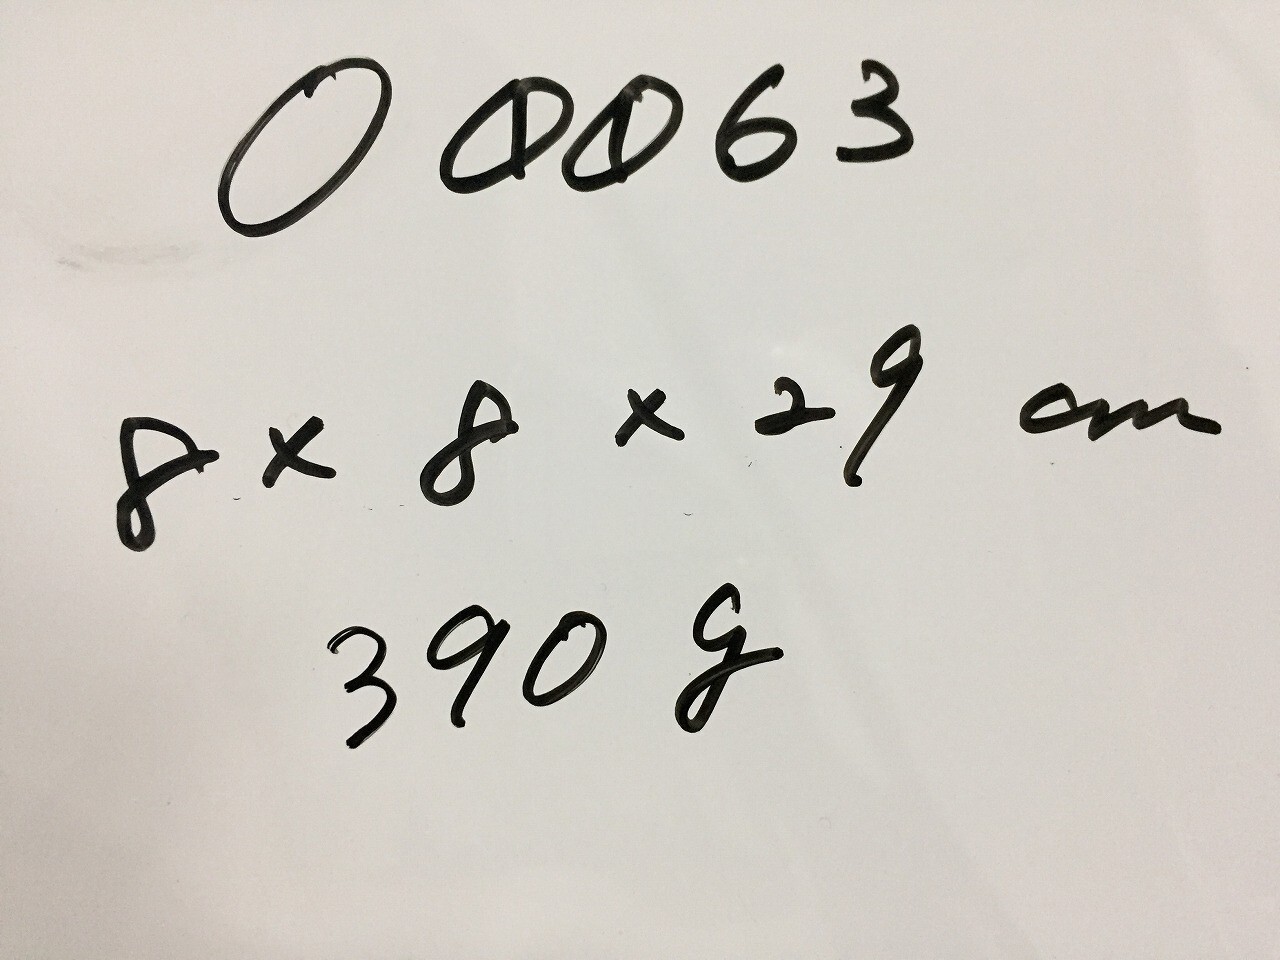 O 0063
8 x 8 x 29 cm
390 g